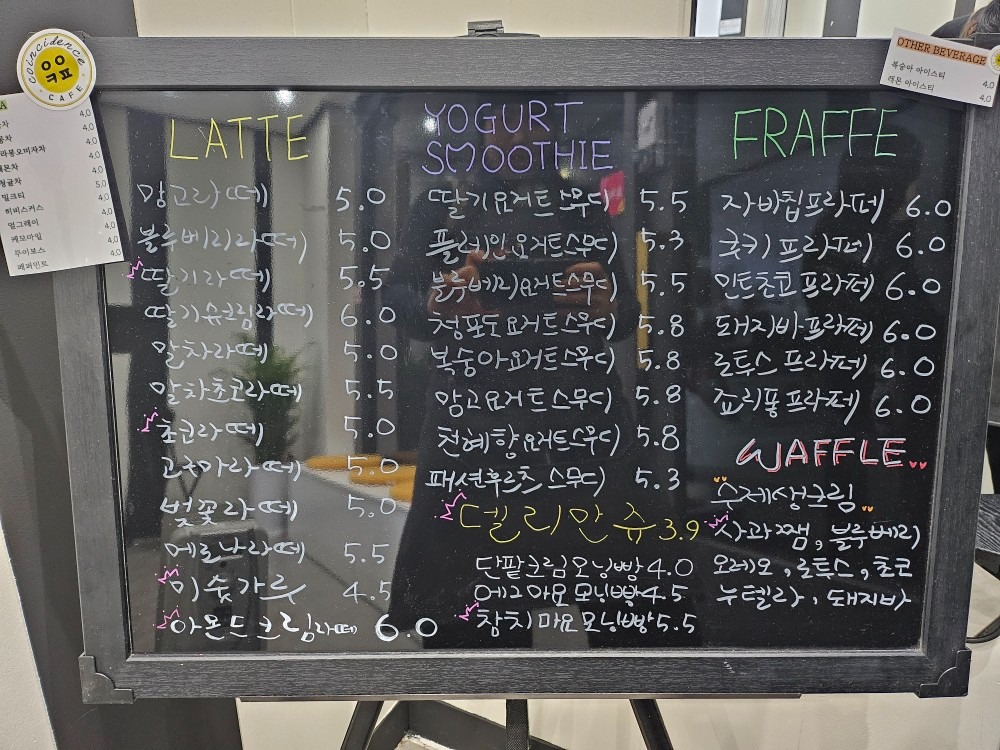 coincidence
CAFE
4.0
4.0
4.0
라봉오미자차 4.0
4.0
5.0
밀크티 4.0
히비스커스 4.0
얼그레이 4.0
캐모마일 4.0
루이보스 4.0
페퍼민트 4.0
OTHER BEVERAGE
복숭아 아이스티 4.0
레몬 아이스티 4.0
LATTE
망고라떼 5.0
블루베리라떼 5.0
딸기라떼 5.5
딸기슈크림라떼 6.0
말차라떼 5.0
말차초코라떼 5.5
초코라떼 5.0
고구마라떼 5.0
벚꽃라떼 5.0
메로나라떼 5.5
미숫가루 4.5
아몬드크림라떼 6.0
YOGURT
SMOOTHIE
딸기요거트스무디 5.5
플레인요거트스무디 5.3
블루베리요거트스무디 5.5
청포도요거트스무디 5.8
복숭아요거트스무디 5.8
망고요거트스무디 5.8
천혜향요거트스무디 5.8
패션후르츠스무디 5.3
델리만쥬 3.9
단팥크림모닝빵 4.0
에그마요모닝빵 4.5
참치마요모닝빵 5.5
FRAFFE
자바칩프라페 6.0
쿠키프라페 6.0
민트초코프라페 6.0
돼지바프라페 6.0
로투스프라페 6.0
죠리퐁프라페 6.0
WAFFLE
수제생크림
사과잼, 블루베리
오레오, 로투스, 초코
누텔라, 돼지바